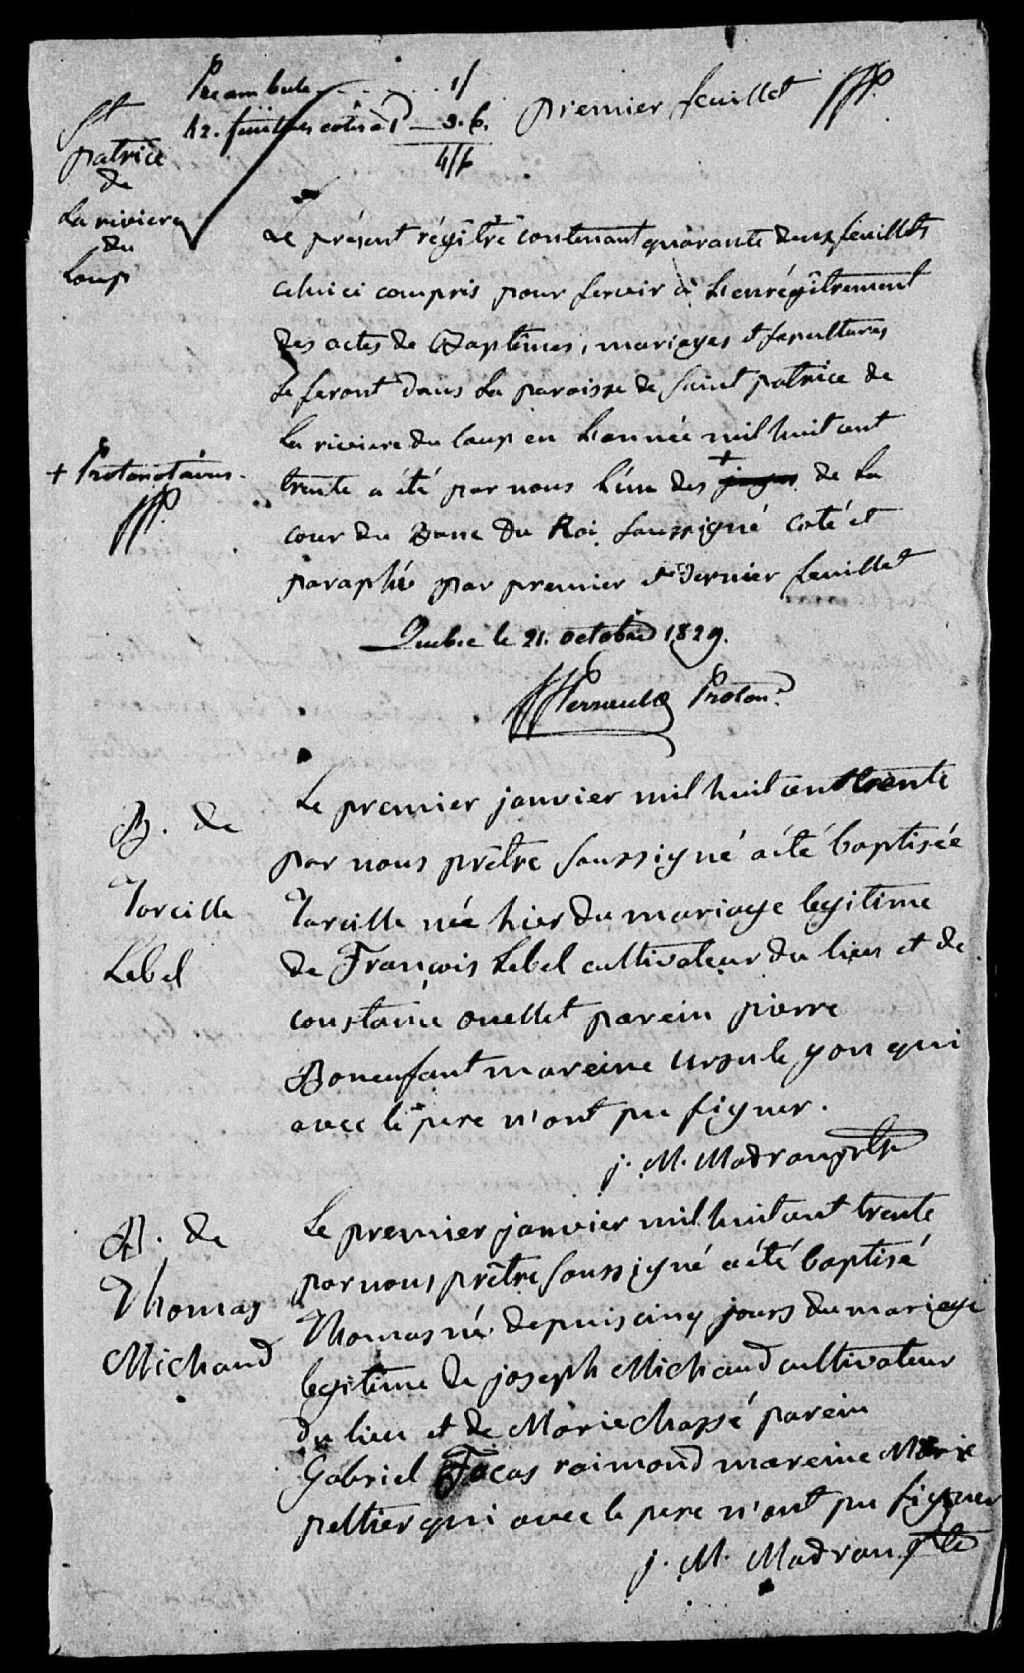 Préambule ..... 1/
42. feuillets cotés à 1d — 3. 6.
4/6
premier feuillet JFP.
St
patrice
de
La riviere
du
Loup
Le présent régître contenant quarante deux feuillets
celui ci compris pour servir à L'enrégîtrement
des actes de Baptêmes, mariages et sepultures
Se feront dans La paroisse de Saint patrice de
La riviere du Loup en L'année mil huit cent
trente a été par nous L'un des + juges de La
+ Protonotaires.
JFP.
cour du Banc du Roi soussigné coté et
paraphé par premier et dernier feuillet
Quebec le 21. octobre 1829.
JFPerrault Proton.
B. de
Tarcille
Lebel
Le premier janvier mil huit cent trente
par nous prêtre soussigné a été baptisée
Tarcille née hier du mariage legitime
de François Lebel cultivateur du lieu et de
constance ouellet parein pierre
Bonenfant mareine ursule yon qui
avec le pere n'ont pu signer.
j. M. Madran ptre
B. de
Thomas
Michaud
Le premier janvier mil huit cent trente
par nous prêtre soussigné a été baptisé
Thomas né depuis cinq jours du mariage
legitime de joseph Michaud cultivateur
du lieu et de Marie chassé parein
Gabriel Focas raimond mareine Marie
peltier qui avec le pere n'ont pu signer
j. M. Madran ptre